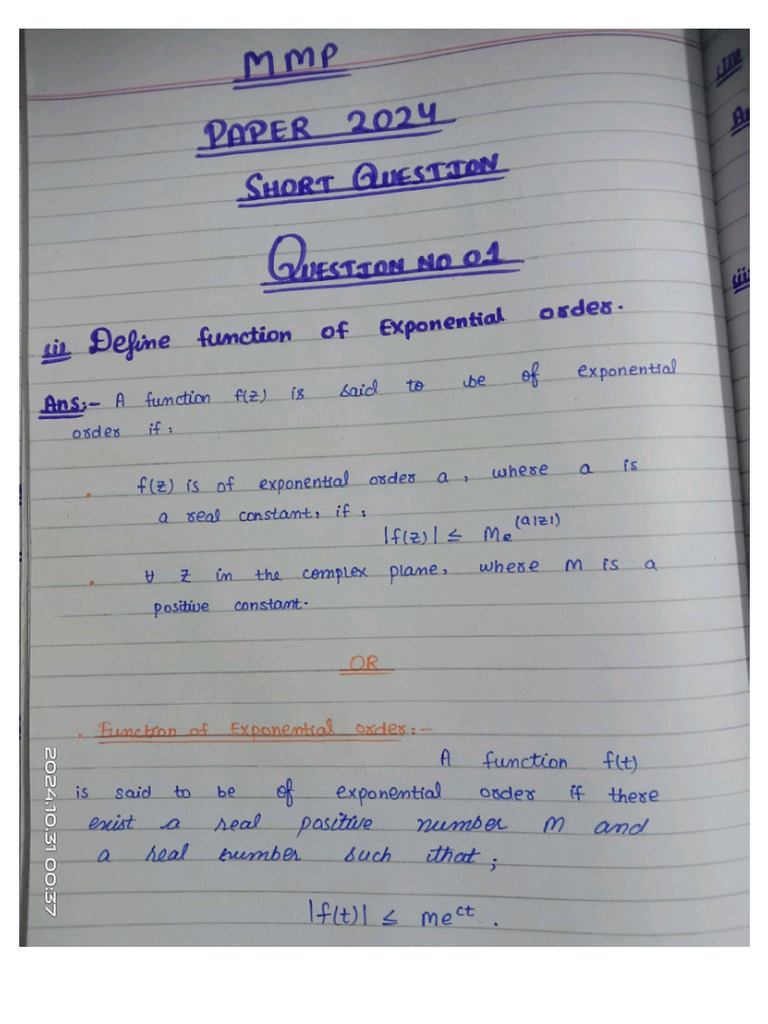 MMP
PAPER 2024
SHORT QUESTION
QUESTION NO 01
iii Define function of Exponential order.
Ans:- A function f(z) is said to be of exponential
order if:
• f(z) is of exponential order a, where a is
a real constant, if:
|f(z)| ≤ Me^(a|z|)
• ∀ z in the complex plane, where M is a
positive constant.
OR
• Function of Exponential order:-
A function f(t)
is said to be of exponential order if there
exist a real positive number M and
a real number such that;
|f(t)| ≤ me^ct.
2024.10.31 00:37